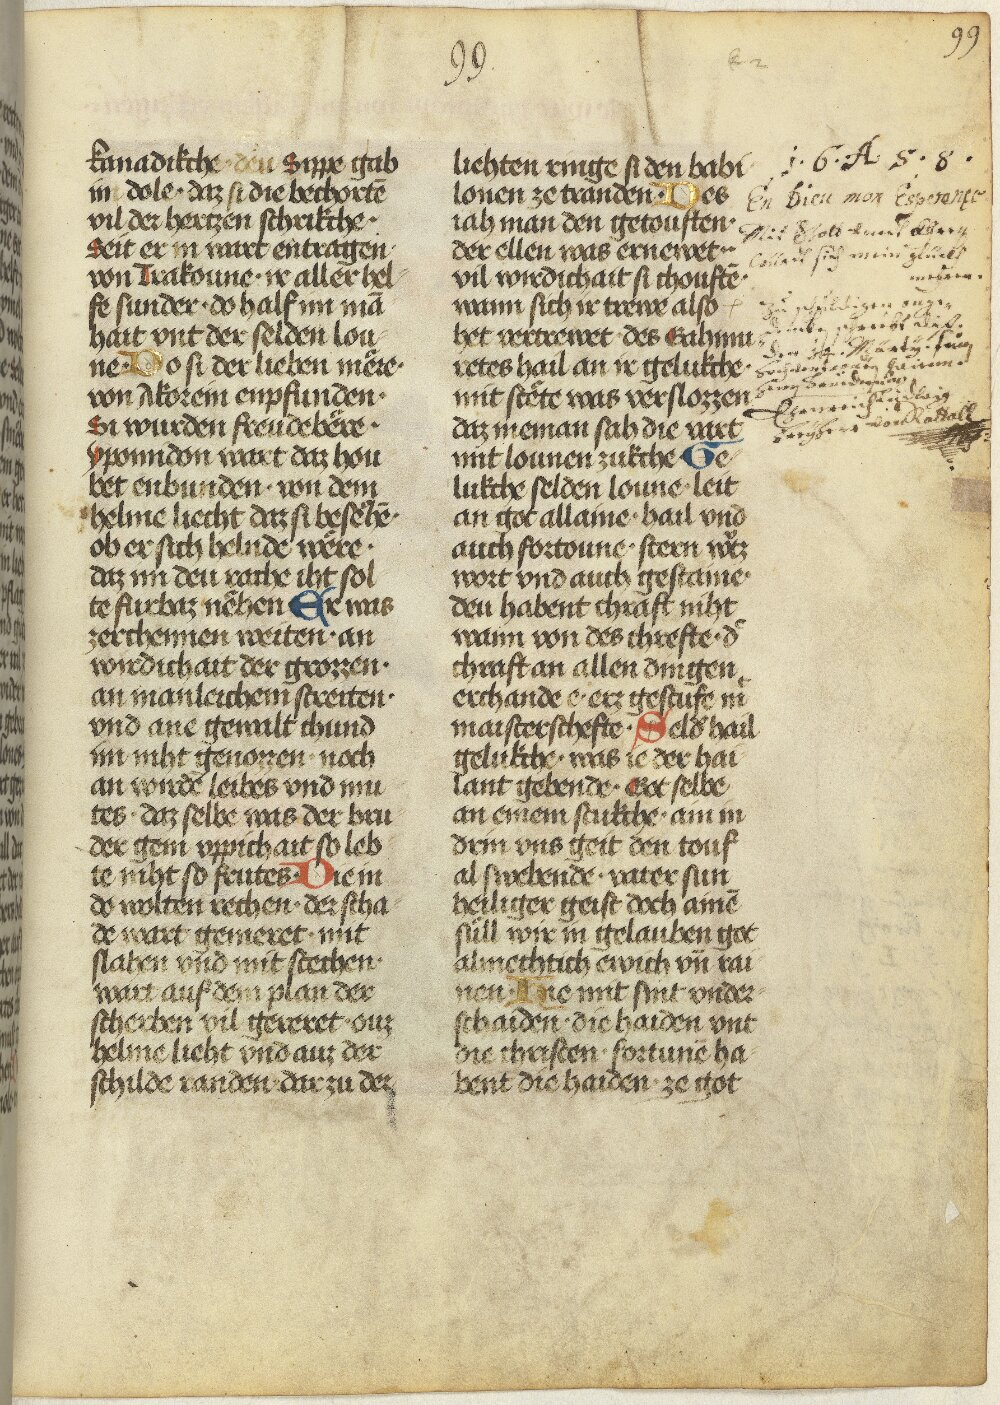 99
99
kanadikche · den Sippe gab
in dole · daz si die bechorte
vil der hertzen schrikche ·
Seit er in wart entragen
von Trakoune · ir aller hel
fe sunder · do half im mā
hait vnt der selden lou
ne · Do si der lieben mëre ·
von Akorein enpfunden ·
Si wurden freudebëre ·
yponndon wart daz hou
bet enbunden · von dem
helme liecht daz si besehē ·
ob er sich helnde wëre ·
daz im deu rache iht sol
te furbaz nëhen Er was
zerchennen weiten · an
wirdichait der grozzen ·
an manleichem streiten ·
vnd ane gewalt chund
im niht genozzen · noch
an wirde leibes vnd mu
tes · daz selbe was der bru
der gein vppichait so leb
te niht so frutes · Die in
do wolten rechen · der scha
de wart gemeret · mit
slahen vnd mit stechen ·
wart auf dem plan der
scherben vil gereret · ouz
helme lieht vnd auz der
schilde randen · dar zu der
liehten ringe si den babi
lonen ze tranden · Des
iah man den getouften ·
der ellen was ernewet ·
vil wirdichait si chouftē ·
wann sich ir trewe also
het vertrewet · des Gahmu
retes hail an ir gelukche ·
mit stëte was verslozzen
daz nieman sah die vart
mit lounen zukche Ge
lukche selden loune · leit
an got allaine · hail vnd
auch fortoune · stern wrtz
wort vnd auch gestaine ·
deu habent chraft niht
wann von des chrefte · d̄
chraft an allen dingen
erchande e · erz gestufe in
maisterschefte · Seld hail
gelukche · was ie der hai
lant gebende · Got selbe
an einem stukche · ain in
drin vns geit den touf
al swebende · vater sun
heiliger geist doch ainē
süll wir in gelauben got
almechtich ewich vñ rai
nen · Hie mit sint vnder
schaiden · die haiden vnt
die christen · fortunē ha
bent die haiden · ze got
1 · 6 · A · 5 · 8 ·
En Dieu mon Esperance